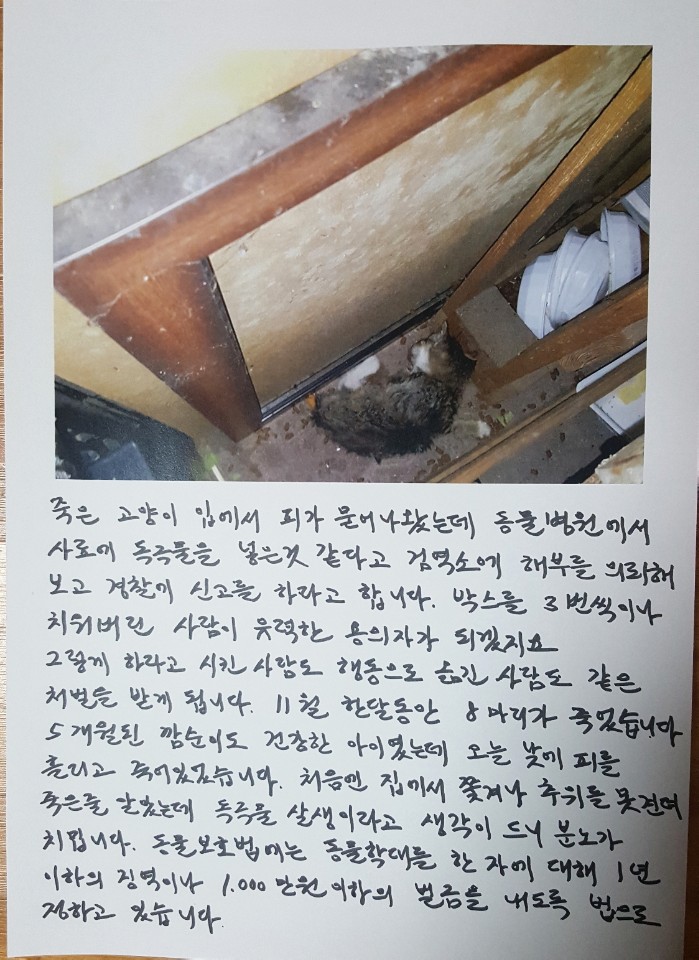 죽은 고양이 입에서 피가 묻어나왔는데 동물병원에서
사료에 독극물을 넣은것 같다고 검역소에 해부를 의뢰해
보고 경찰에 신고를 하라고 합니다. 박스를 3번씩이나
치워버린 사람이 유력한 용의자가 되겠지요
그렇게 하라고 시킨 사람도 행동으로 옮긴 사람도 같은
처벌을 받게 됩니다. 11월 한달동안 8마리가 죽었습니다
5개월된 깜순이도 건강한 아이였는데 오늘 낮에 피를
흘리고 죽어있었습니다. 처음엔 집에서 쫓겨나 추위를 못견뎌
죽은줄 알았는데 독극물 살생이라고 생각이 드니 분노가
치밉니다. 동물보호법에는 동물학대를 한 자에 대해 1년
이하의 징역이나 1.000만원이하의 벌금을 내도록 법으로
정하고 있습니다.